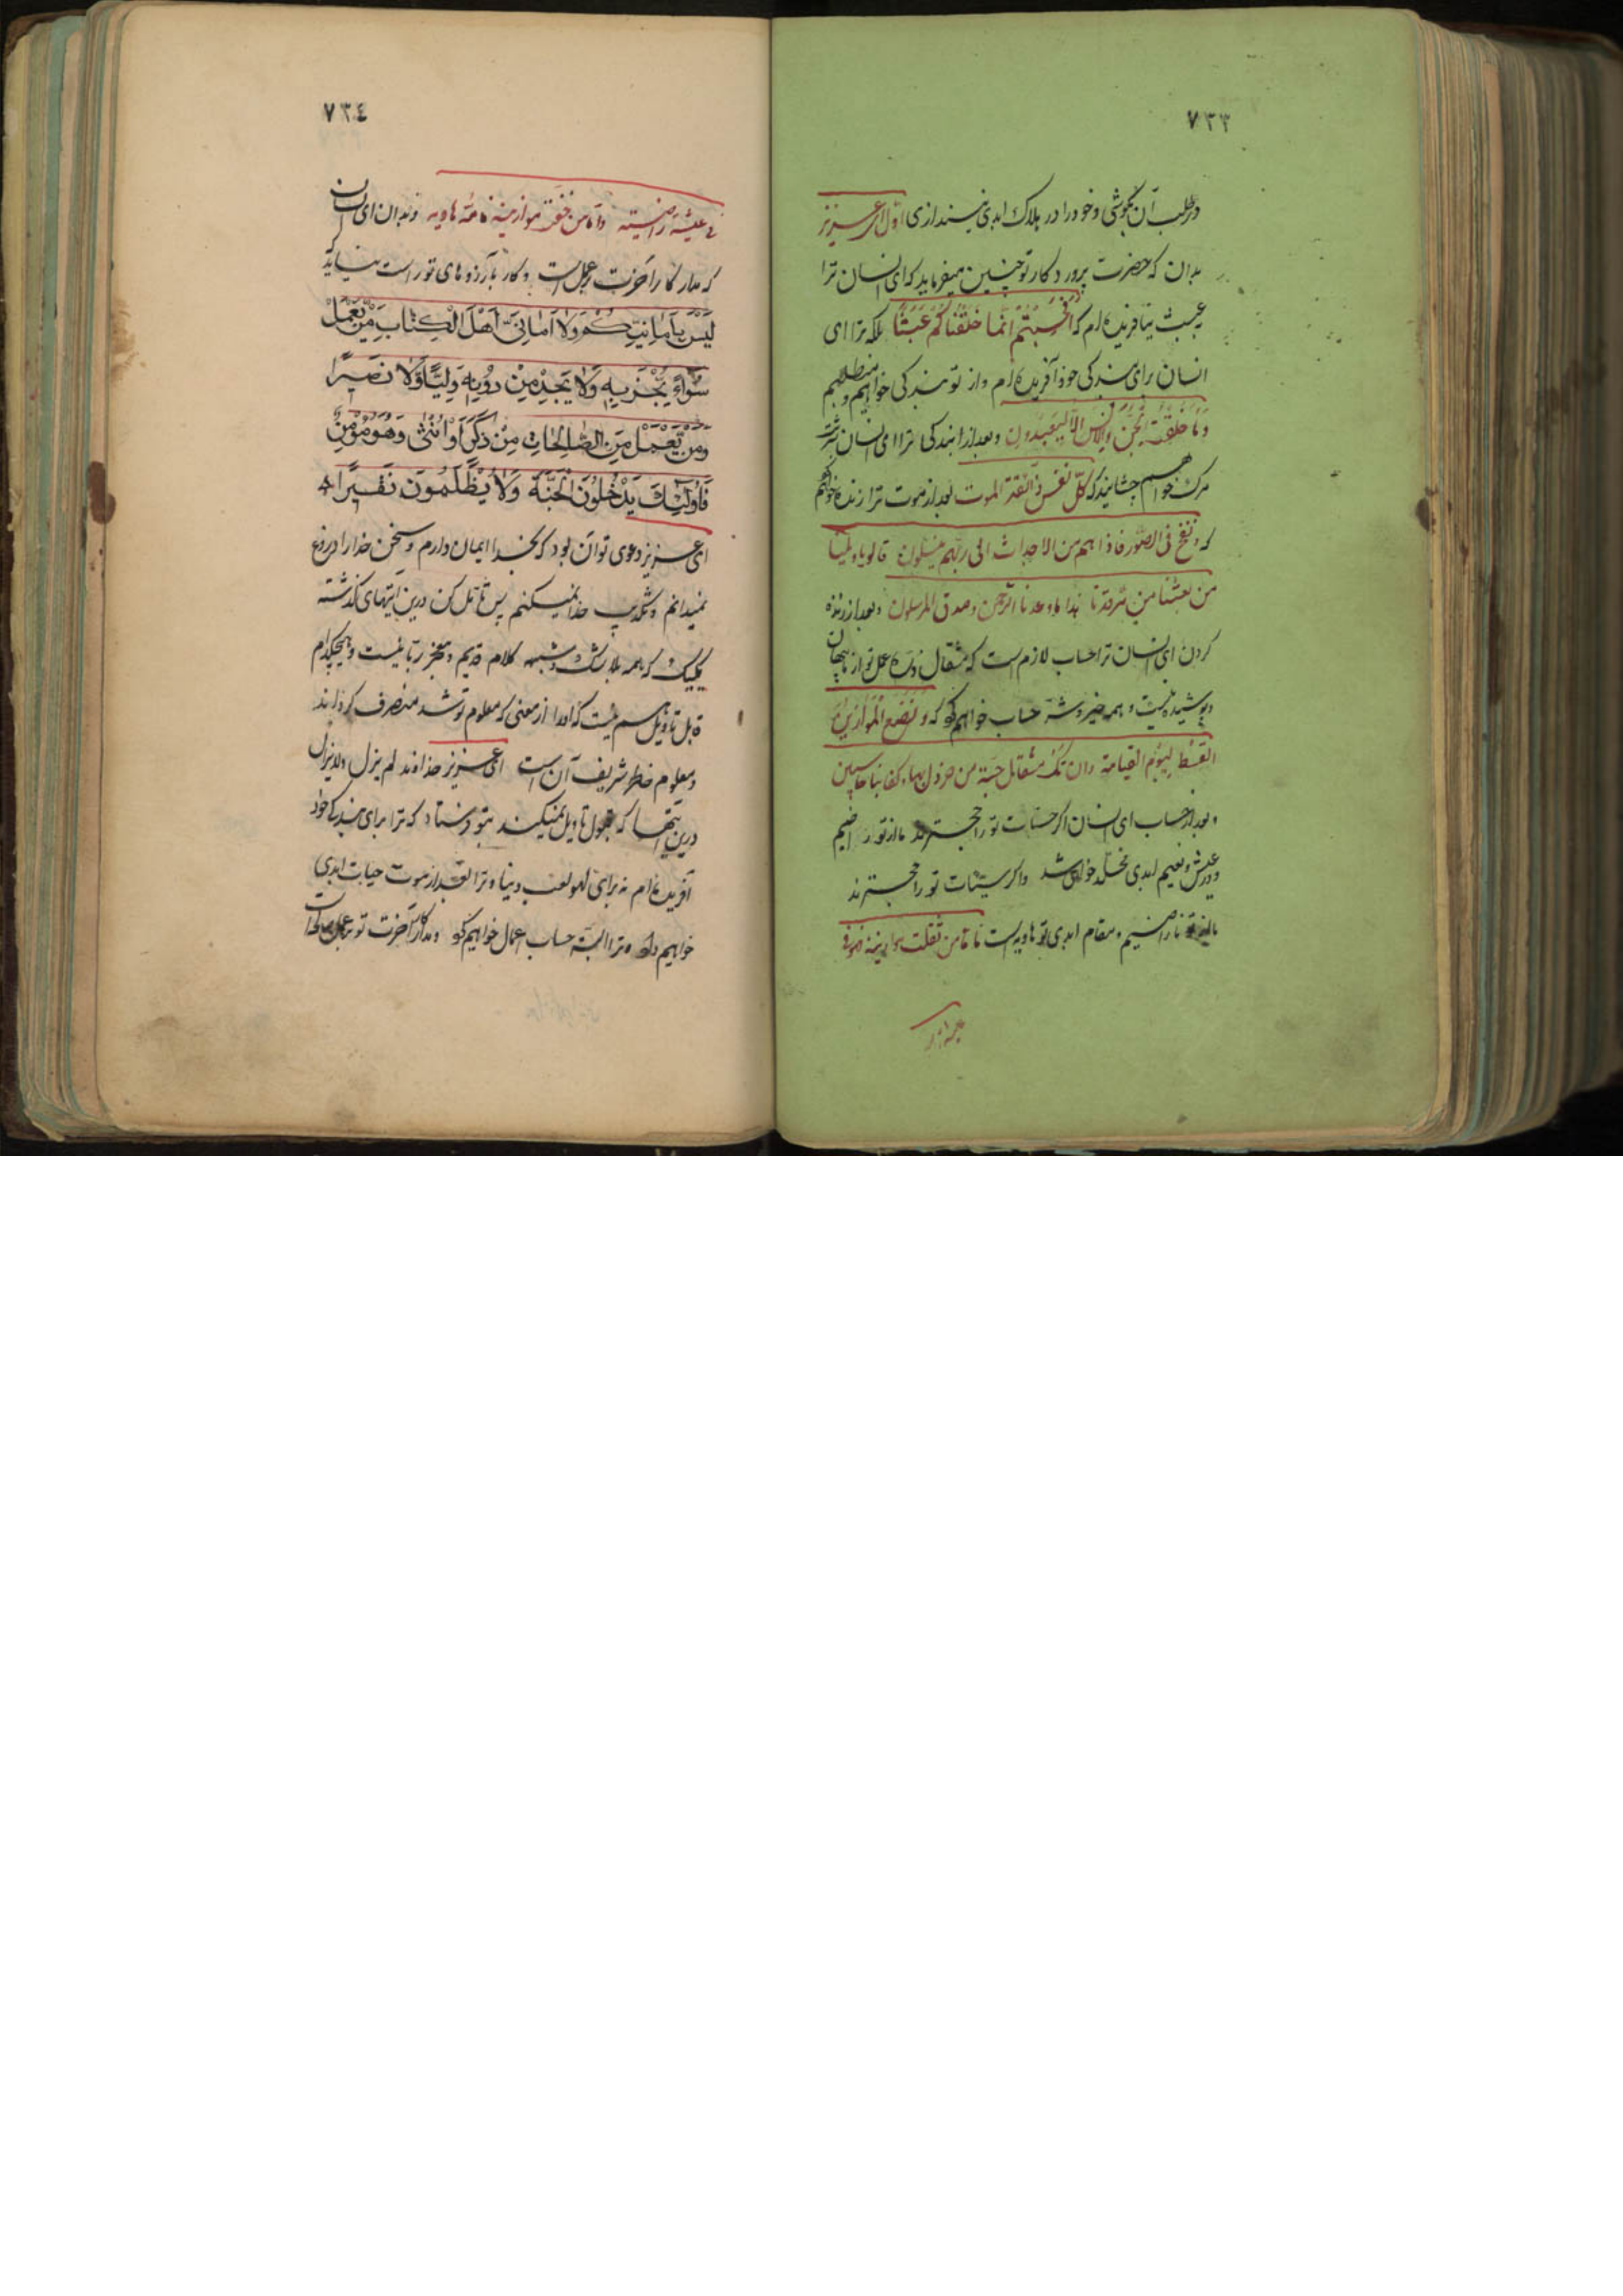 ٧٣٣
در طلب آن نکوشی و خود را در هلاک ابدی نیندازی اوّل ای عزیز
بدان که حضرت پروردکار تو چنین میفرماید که ای انسان ترا
عبث نیافریده‌ام که افحسبتم انّما خلقناکم عبثًا بلکه ترا ای
انسان برای بندکی خود آفریده‌ام و از تو بندکی خواهیم
و ما خلقت الجنّ والانس الّا لیعبدون و بعد از بندکی ترا ای انسان شربت
مرک خواهیم چشانید که کلّ نفس ذائقة الموت بعد از موت ترا زنده خواهیم
که و نفخ فی الصّور فاذا هم من الاجداث الی ربّهم ینسلون قالوا یا ویلنا
من بعثنا من مرقدنا هذا ما وعدنا الرّحمن و صدق المرسلون و بعد از زنده
کردن ای انسان ترا حساب لازم است که مثقال ذره عمل تو از ما پنهان
و پوشیده نیست و همه خیر و شرّ حساب خواهم کو که و نضع الموازین
القسط لیوم القیامة و ان تک مثقال حبّة من خردل بها و کفا بنا حاسبین
و بعد از حساب ای انسان اکر حسنات تو راجح‌ترند ما از تو راضیم
و در عیش و نعیم ابدی مخلّد خواهی شد و اکر سیّئات تو راجح‌ترند
ما از تو ناراضیم و مقام ابدی تو هاویه است فامّا من ثقلت موازینه فهو فی
٧٣٤
فی عیشة راضیة و امّا من خفّت موازینه فامّه هاویه و بدان ای انسان
که مدار کار آخرت بر عمل است و کار بآرزوهای تو راست نیاید که
لَیْسَ بِاَمانِیِّکُمْ وَلا اَمانِیِّ اَهْلِ الْکِتابِ مَنْ یَعْمَلْ
سُوٓاءً یُجْزَ بِهِ وَلا یَجِدْ مِنْ دُونِهِ وَلِیًّا وَلا نَصیرًا
وَمَنْ یَعْمَلْ مِنَ الصّالِحاتِ مِنْ ذَکَرٍ اَوْ اُنْثٰی وَهُوَ مُؤْمِنٌ
فَاُولٰئِکَ یَدْخُلُونَ الْجَنَّةَ وَلا یُظْلَمُونَ نَقیرًا
ای عزیز دعوی تو آن بود که بخدا ایمان دارم و سخن خدا را دروغ
نمیدانم و تکذیب خدا نمیکنم پس تأمّل کن درین آیتهای کذشته
یکیک که همه بلا شک و شبهه کلام قدیم و معجز ربّانیست و هیچکدام
قابل تأویل هم نیست که او را از معنی که معلوم تو شد منصرف کرداند
و معلوم خاطر شریف آن است ای عزیز خداوند لم یزل و لا یزال
درین آیتها که قبول تأویل نمیکنند بتو فرستاد که ترا برای بندکی خود
آفریده‌ام نه برای لهو و لعب دنیا و ترا بعد از موت حیات ابدی
خواهیم داد و ترا البتّه حساب اعمال خواهیم کو و مدار کار آخرت تو بر عمل صالح است